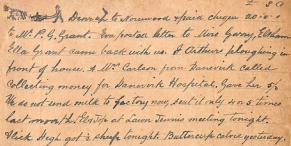 Drove up to Norwood & paid cheque 20.0.0
to Mr P. G. Grant. Ern posted letter to Miss Garry, Eltham
Ella Grant came back with us. H Arthurs ploughing in
front of house. A Mrs Carlson from Danevirk called
Collecting money for Danevirk Hospital. Gave her 5/-
We do not send milk to factory now, sent it only 4 or 5 times
last month. at Lawn Tennis meeting tonight.
Hugh got 2 sheep tonight. Buttercup calved yesterday.